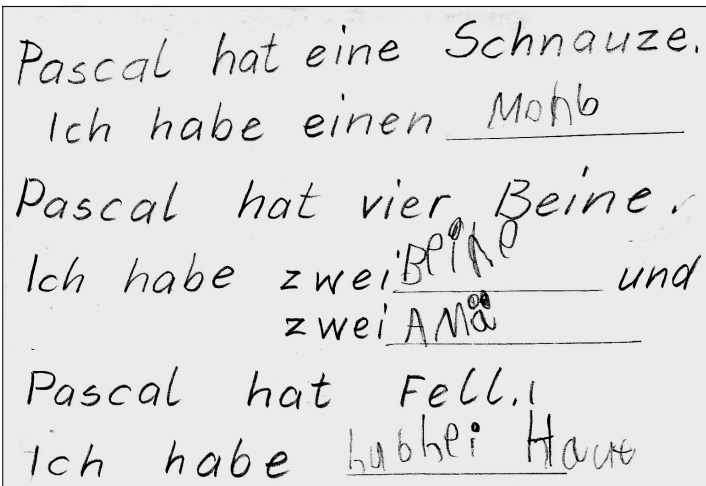 Pascal hat eine Schnauze.
Ich habe einen Mohb
Pascal hat vier Beine.
Ich habe zwei Beine und
zwei AMä
Pascal hat Fell.
Ich habe Haut